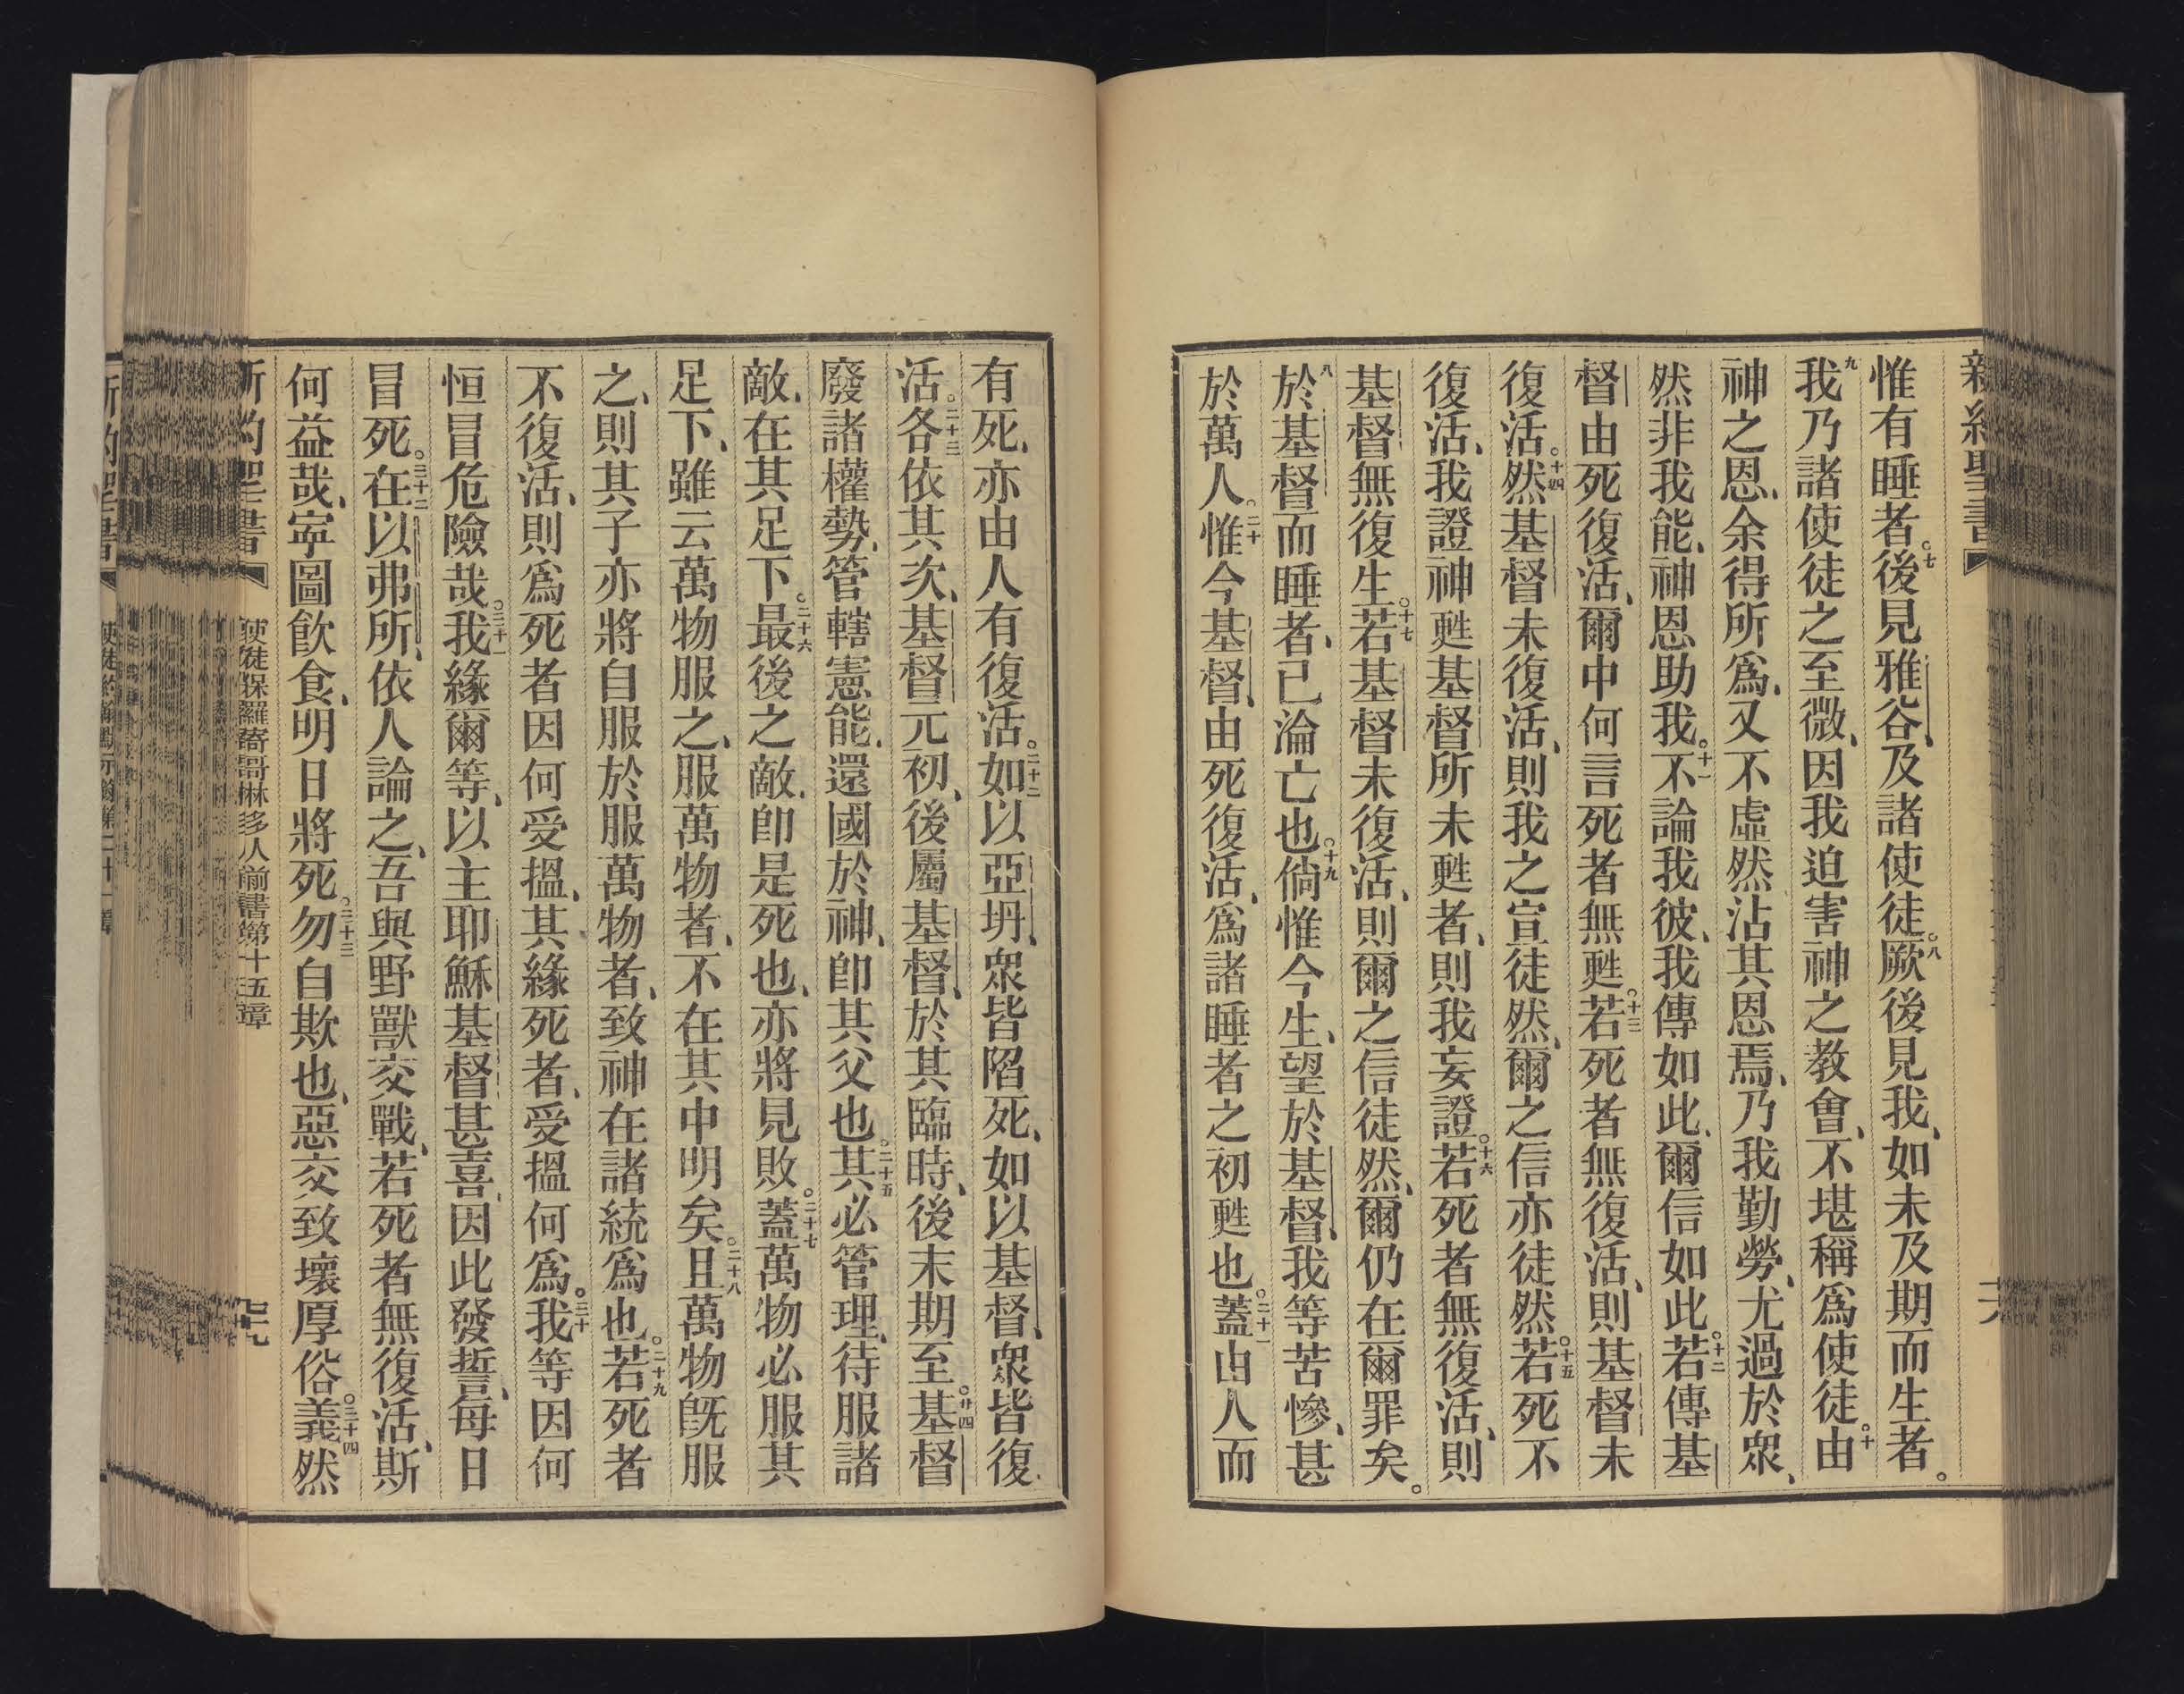 新約聖書
惟有睡者。七後見雅谷、及諸使徒。八厥後見我、如未及期而生者。
九我乃諸使徒之至微、因我迫害神之教會、不堪稱爲使徒。十由
神之恩、余得所爲、又不虛然沾其恩焉、乃我勤勞、尤過於衆、
然非我能、神恩助我。十一不論我彼、我傳如此、爾信如此。十二若傳基
督由死復活、爾中何言死者無甦。十三若死者無復活、則基督未
復活。十四然基督未復活、則我之宣徒然、爾之信亦徒然。十五若死不
復活、我證神甦基督所未甦者、則我妄證。十六若死者無復活、則
基督無復生。十七若基督未復活、則爾之信徒然、爾仍在爾罪矣。
八於基督而睡者、已淪亡也。十九倘惟今生、望於基督、我等苦慘、甚
於萬人。二十惟今基督、由死復活、爲諸睡者之初甦也。二十一蓋由人而
有死、亦由人有復活。二十二如以亞坍、衆皆陷死、如以基督、衆皆復
活。二十三各依其次、基督元初、後屬基督、於其臨時、後末期至。廿四基督
廢諸權勢、管轄憲能、還國於神、卽其父也。二十五其必管理、待服諸
敵、在其足下。二十六最後之敵、卽是死也、亦將見敗。二十七蓋萬物必服其
足下、雖云萬物服之、服萬物者、不在其中明矣。二十八且萬物旣服
之、則其子亦將自服於服萬物者、致神在諸統爲也。二十九若死者
不復活、則爲死者因何受搵、其緣死者、受搵何爲。三十我等因何
恒冒危險哉。三十一我緣爾等、以主耶穌基督甚喜、因此發誓、每日
冒死。三十二在以弗所、依人論之、吾與野獸交戰、若死者無復活、斯
何益哉、寧圖飮食、明日將死。三十三勿自欺也、惡交致壞厚俗。三十四義然
新約聖書 使徒保羅寄哥林多人前書第十五章